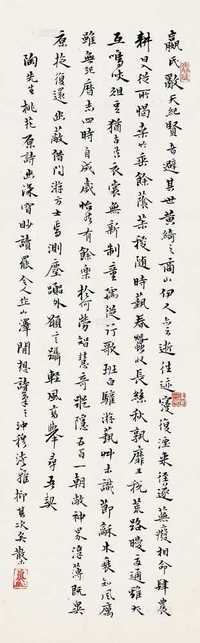 嬴氏亂天紀賢者避其世黃綺之商山伊人亦云逝往迹寖復湮來徑遂蕪廢相命肆農
耕日入從所憩桑竹垂餘蔭菽稷隨時藝春蠶收長絲秋熟靡王稅荒路曖交通雞犬
互鳴吠俎豆猶古法衣裳無新制童孺縱行歌班白歡游詣草榮識節和木衰知風厲
雖無紀歷志四時自成歲怡然有餘樂於何勞智慧奇蹤隱五百一朝敞神界淳薄既異
源旋復還幽蔽借問游方士焉測塵囂外願言躡輕風高舉尋吾契
陶先生桃花源詩幽深窅妙讀罷令人山澤閒想